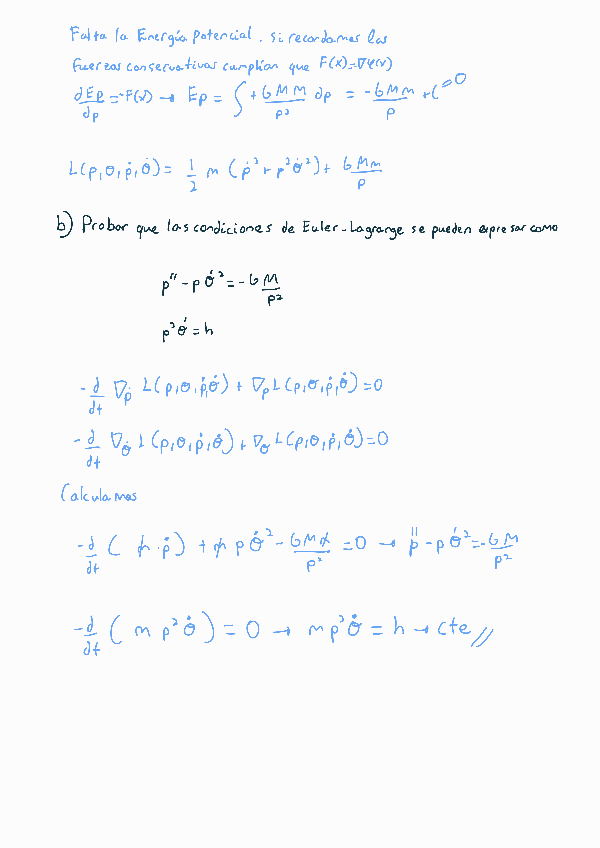 Falta la Energía potencial. Si recordamos las
fuerzas conservativas cumplían que F(x)=∇φ(x)
dEp/dρ = -F(x) → Ep = ∫ + GMm/ρ² dρ = - GMm/ρ + C → 0
L(ρ,θ,ρ̇,θ̇) = 1/2 m (ρ̇² + ρ²θ̇²) + GMm/ρ
b) Probar que las condiciones de Euler-Lagrange se pueden expresar como
ρ'' - ρ θ'² = - GM/ρ²
ρ² θ' = h
- d/dt ∇ρ̇ L(ρ,θ,ρ̇,θ̇) + ∇ρ L(ρ,θ,ρ̇,θ̇) = 0
- d/dt ∇θ̇ L(ρ,θ,ρ̇,θ̇) + ∇θ L(ρ,θ,ρ̇,θ̇) = 0
Calculamos
- d/dt ( m · ρ̇ ) + m ρ θ̇² - GMm/ρ² = 0 → ρ'' - ρ θ'² = - GM/ρ²
- d/dt ( m ρ² θ̇ ) = 0 → m ρ² θ̇ = h → cte //